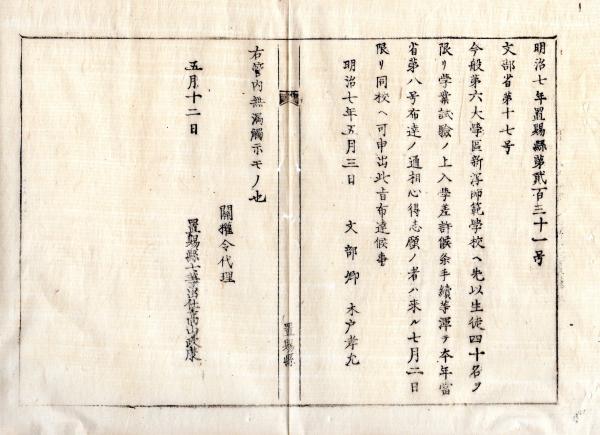 明治七年置賜縣第貳百三十一号
文部省第十七号
今般第六大學區新潟師範學校ヘ先以生徒四十名ヲ
限リ学業試験ノ上入學差許候条手續等渾テ本年當
省第八号布達ノ通相心得志願ノ者ハ來ル七月二日
限リ同校ヘ可申出此旨布達候事
明治七年五月三日 文部卿 木戸孝允
置賜縣
右管内無漏觸示モノ也
五月十二日
關權令代理
置賜縣七等出仕高山政康